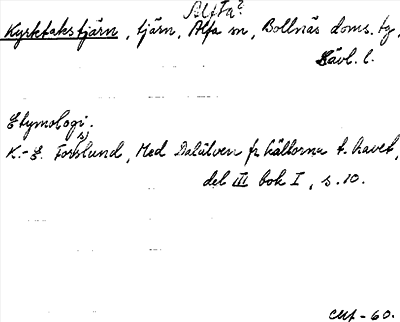 Alfta?
Kyrktakstjärn, tjärn, Alfa sn, Bollnäs doms. tg,
Gävl. l.
Etymologi.
K.-E. Forsslund, Med Dalälven fr. källorna t. havet,
del III bok I, s. 10.
-60.